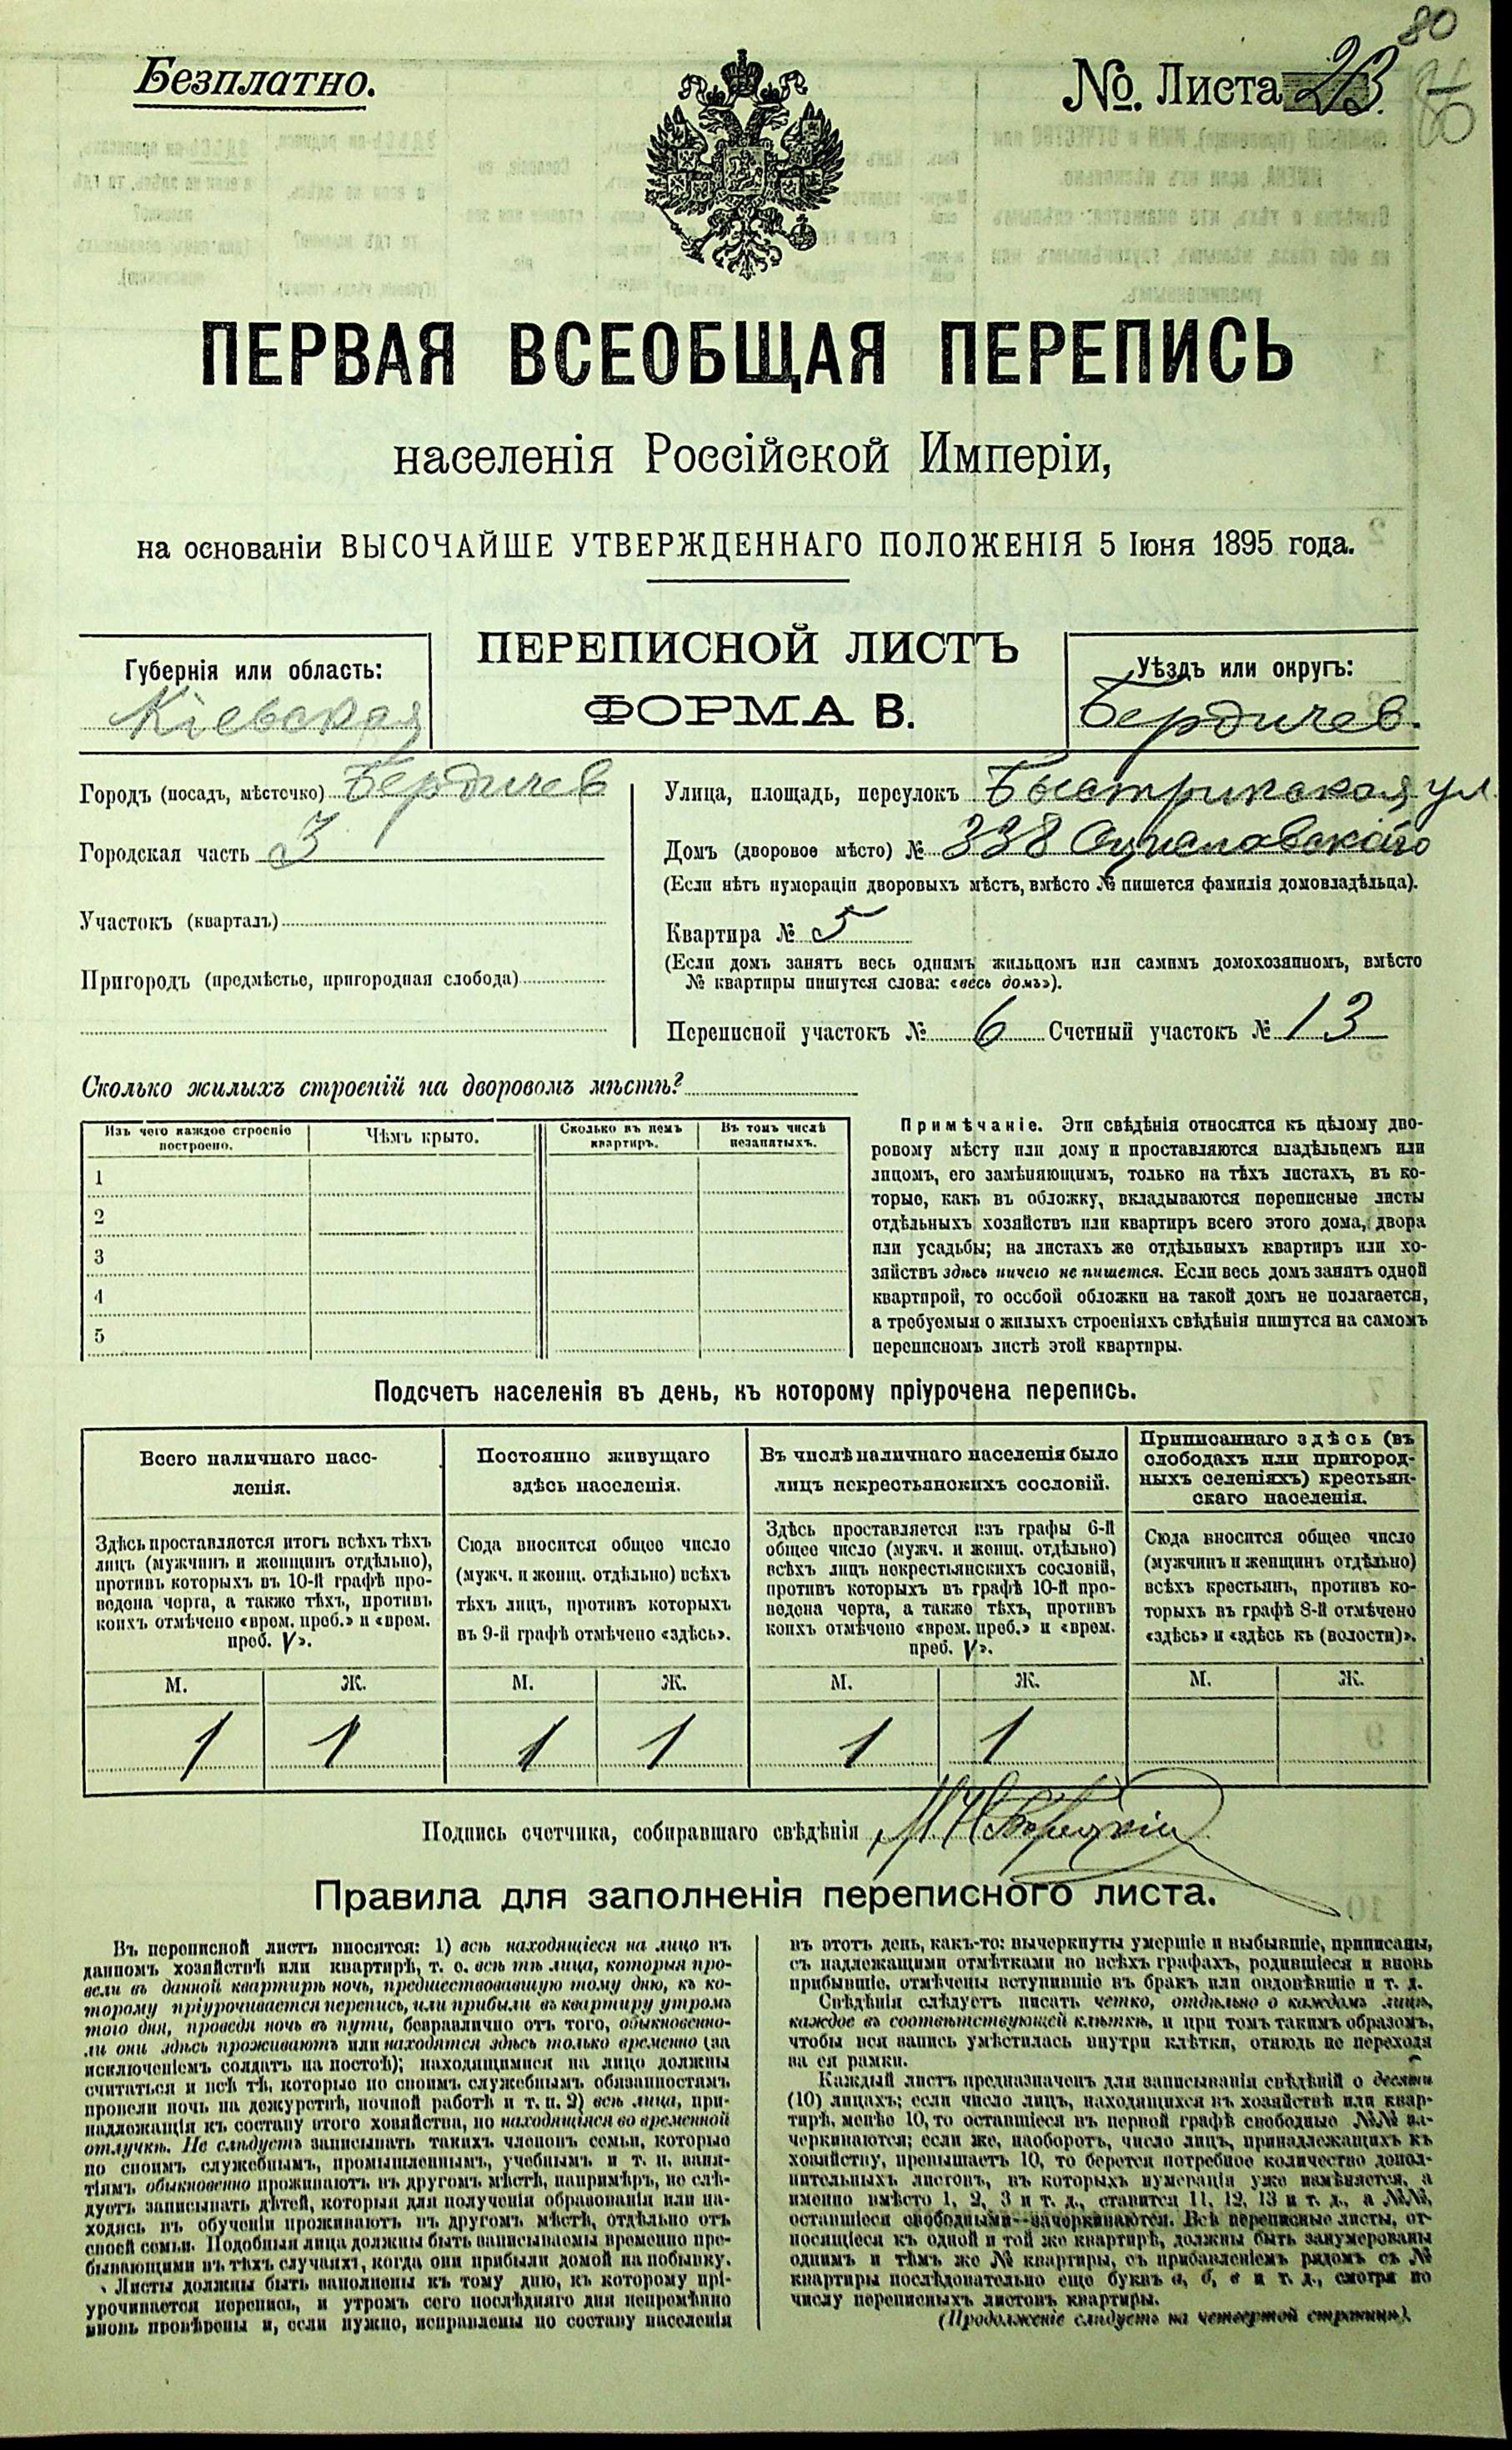 80
Безплатно.
№. Листа 23.
ПЕРВАЯ ВСЕОБЩАЯ ПЕРЕПИСЬ
населенія Россійской Имперіи,
на основаніи ВЫСОЧАЙШЕ УТВЕРЖДЕННАГО ПОЛОЖЕНІЯ 5 Іюня 1895 года.
Губернія или область:
Кіевская
ПЕРЕПИСНОЙ ЛИСТЪ
ФОРМА В.
Уѣздъ или округъ:
Бердичев.
Городъ (посадъ, мѣстечко) Бердичев
Городская часть 3
Участокъ (кварталъ)
Пригородъ (предмѣстье, пригородная слобода)
Улица, площадь, переулокъ Быстрикская ул
Домъ (дворовое мѣсто) № 338
(Если нѣтъ нумераціи дворовыхъ мѣстъ, вмѣсто № пишется фамилія домовладѣльца).
Квартира № 5
(Если домъ занятъ весь однимъ жильцомъ или самимъ домохозяиномъ, вмѣсто
№ квартиры пишутся слова: «весь домъ»).
Переписной участокъ № 6 Счетный участокъ № 13
Сколько жилыхъ строеній на дворовомъ мѣстѣ?
Изъ чего каждое строеніе
построено.
Чѣмъ крыто.
Сколько въ немъ
квартиръ.
Въ томъ числѣ
незанятыхъ.
1
2
3
4
5
Примѣчаніе. Эти свѣдѣнія относятся къ цѣлому дво-
ровому мѣсту или дому и проставляются владѣльцемъ или
лицомъ, его замѣняющимъ, только на тѣхъ листахъ, въ ко-
торые, какъ въ обложку, вкладываются переписные листы
отдѣльныхъ хозяйствъ или квартиръ всего этого дома, двора
или усадьбы; на листахъ же отдѣльныхъ квартиръ или хо-
зяйствъ здѣсь ничего не пишется. Если весь домъ занятъ одной
квартирой, то особой обложки на такой домъ не полагается,
а требуемыя о жилыхъ строеніяхъ свѣдѣнія пишутся на самомъ
переписномъ листѣ этой квартиры.
Подсчетъ населенія въ день, къ которому пріурочена перепись.
Всего наличнаго насе-
ленія.
Здѣсь проставляется итогъ всѣхъ тѣхъ
лицъ (мужчинъ и женщинъ отдѣльно),
противъ которыхъ въ 10-й графѣ про-
ведена черта, а также тѣхъ, противъ
коихъ отмѣчено «врем. преб.» и «врем.
преб. V».
Постоянно живущаго
здѣсь населенія.
Сюда вносится общее число
(мужч. и женщ. отдѣльно) всѣхъ
тѣхъ лицъ, противъ которыхъ
въ 9-й графѣ отмѣчено «здѣсь».
Въ числѣ наличнаго населенія было
лицъ некрестьянскихъ сословій.
Здѣсь проставляется изъ графы 6-й
общее число (мужч. и женщ. отдѣльно)
всѣхъ лицъ некрестьянскихъ сословій,
противъ которыхъ въ графѣ 10-й про-
ведена черта, а также тѣхъ, противъ
коихъ отмѣчено «врем. преб.» и «врем.
преб. V».
Приписаннаго здѣсь (въ
слободахъ или пригород-
ныхъ селеніяхъ) крестьян-
скаго населенія.
Сюда вносится общее число
(мужчинъ и женщинъ отдѣльно)
всѣхъ крестьянъ, противъ ко-
торыхъ въ графѣ 8-й отмѣчено
«здѣсь» и «здѣсь къ (волости)».
М. Ж. М. Ж. М. Ж. М. Ж.
1 1 1 1 1 1
Подпись счетчика, собиравшаго свѣдѣнія
Правила для заполненія переписного листа.
Въ переписной листъ вносятся: 1) всѣ находящіеся на лицо въ
данномъ хозяйствѣ или квартирѣ, т. е. всѣ тѣ лица, которыя про-
вели въ данной квартирѣ ночь, предшествовавшую тому дню, къ ко-
торому пріурочивается перепись, или прибыли въ квартиру утромъ
того дня, проведя ночь въ пути, безразлично отъ того, обыкновенно-
ли они здѣсь проживаютъ или находятся здѣсь только временно (за
исключеніемъ солдатъ на постоѣ); находящимися на лицо должны
считаться и всѣ тѣ, которые по своимъ служебнымъ обязанностямъ
провели ночь на дежурствѣ, ночной работѣ и т. п. 2) всѣ лица, при-
надлежащія къ составу этого хозяйства, но находящіяся во временной
отлучкѣ. Не слѣдуетъ записывать такихъ членовъ семьи, которые
по своимъ служебнымъ, промышленнымъ, учебнымъ и т. п. заня-
тіямъ обыкновенно проживаютъ въ другомъ мѣстѣ, напримѣръ, не слѣ-
дуетъ записывать дѣтей, которыя для полученія образованія или на-
ходясь въ обученіи проживаютъ въ другомъ мѣстѣ, отдѣльно отъ
своей семьи. Подобныя лица должны быть записываемы временно пре-
бывающими въ тѣхъ случаяхъ, когда они прибыли домой на побывку.
Листы должны быть заполнены къ тому дню, къ которому прі-
урочивается перепись, и утромъ сего послѣдняго дня непремѣнно
вновь провѣрены и, если нужно, исправлены по составу населенія
въ этотъ день, какъ-то: вычеркнуты умершіе и выбывшіе, приписаны,
съ надлежащими отмѣтками во всѣхъ графахъ, родившіеся и вновь
прибывшіе, отмѣчены вступившіе въ бракъ или овдовѣвшіе и т. д.
Свѣдѣнія слѣдуетъ писать четко, отдѣльно о каждомъ лицѣ,
каждое въ соотвѣтствующей клѣткѣ, и при томъ такимъ образомъ,
чтобы вся запись умѣстилась внутри клѣтки, отнюдь не переходя
за ея рамки.
Каждый листъ предназначенъ для записыванія свѣдѣній о десяти
(10) лицахъ; если число лицъ, находящихся въ хозяйствѣ или квар-
тирѣ, менѣе 10, то оставшіеся въ первой графѣ свободные №№ за-
черкиваются; если же, наоборотъ, число лицъ, принадлежащихъ къ
хозяйству, превышаетъ 10, то берется потребное количество допол-
нительныхъ листовъ, въ которыхъ нумерація уже измѣняется, а
именно вмѣсто 1, 2, 3 и т. д., ставится 11, 12, 13 и т. д., а №№,
оставшіеся свободными—зачеркиваются. Всѣ переписные листы, от-
носящіеся къ одной и той же квартирѣ, должны быть занумерованы
однимъ и тѣмъ же № квартиры, съ прибавленіемъ рядомъ съ №
квартиры послѣдовательно еще буквъ а, б, в и т. д., смотря по
числу переписныхъ листовъ квартиры.
(Продолженіе слѣдуетъ на четвертой страницѣ).